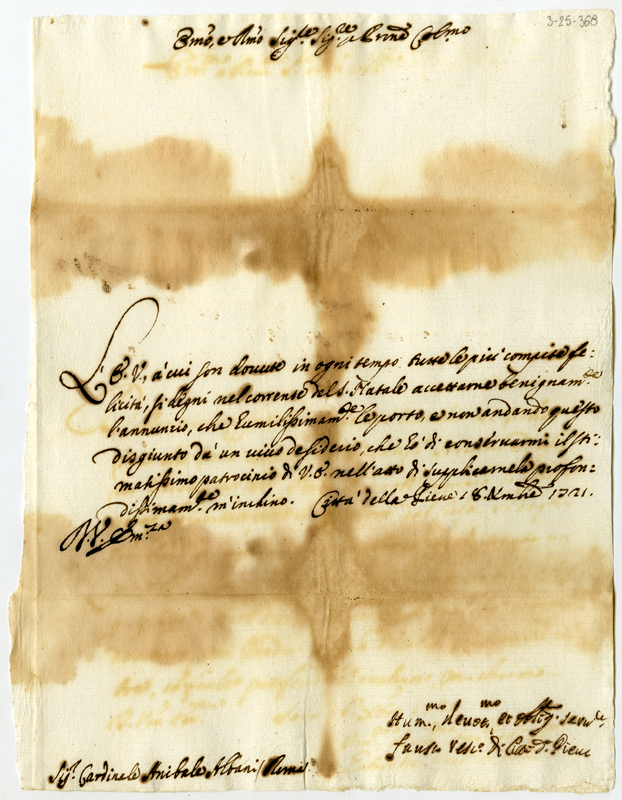 3-25-368
Emo, e Rmo Sigre Sigre e Prone Colmo
L'E. V., à cui son dovute in ogni tempo tutte le più compite fe-
licità, si degni nel corrente del S. Natale accettarne benignam.te
l'annuncio, che humilissimam.te le porto, e non andando questo
disgiunto da un vivo desiderio, che hò di conservarmi il sti-
matissimo patrocinio di V. E. nell'atto di supplicarnela profon-
dissimam.te m'inchino. Città della Pieve 18 Xmbre 1721.
V. Em.za
Hum.mo, deuot.mo et oblig. seru.re
Fausto Vesc.o di Città d. Pieve
Sig.r Cardinale Anibale Albani / Roma